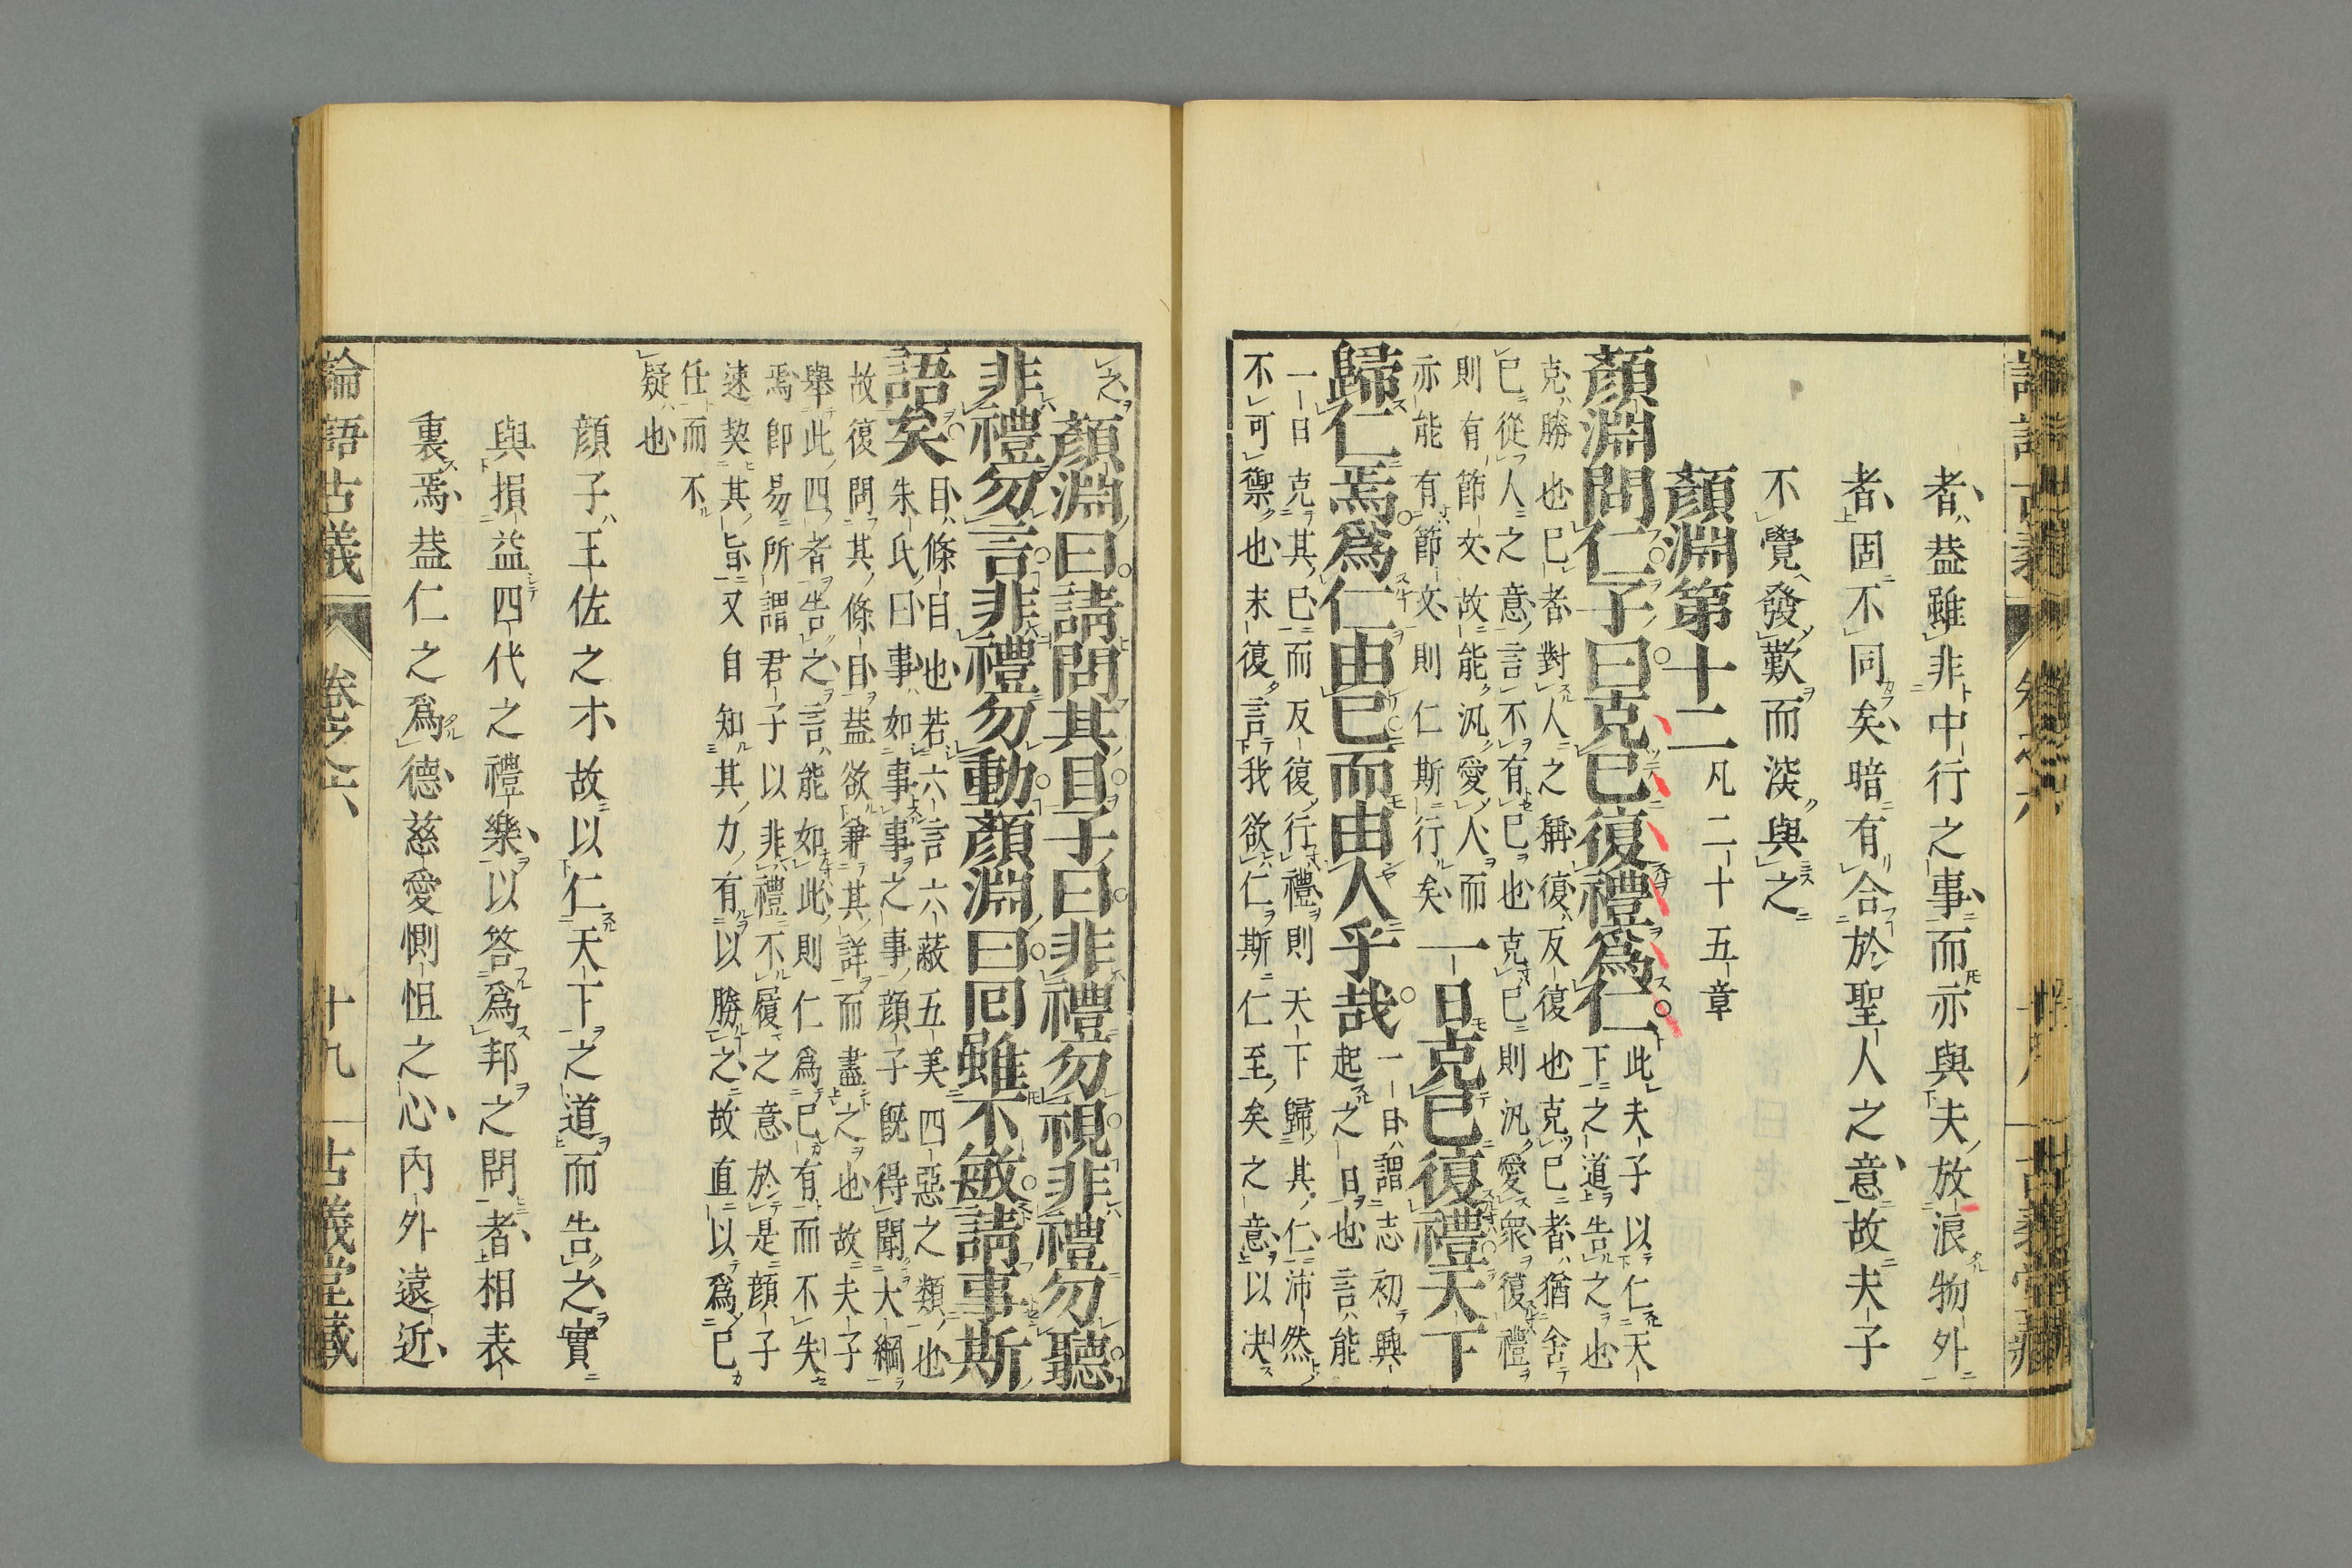 論語古義 卷之六 古義堂藏
者蓋雖非中行之事而亦與夫放浪物外
者固不同矣暗有合於聖人之意故夫子
不覺發歎而深與之
顏淵第十二凡二十五章
顏淵問仁子曰克己復禮爲仁
此夫子以仁天
下之道告之也
克勝也己者對人之稱復反復也克己者猶舍
己從人之意言不有己也克己則汎愛衆復禮
則有節文故能汎愛人而
亦能有節文則仁斯行矣
一日克己復禮天下
歸仁焉爲仁由己而由人乎哉
一日謂志初興
起之日也言能
一日克其己而反復行禮則天下歸其仁沛然
不可禦也末復言我欲仁斯仁至矣之意以决
之
顏淵曰請問其目子曰非禮勿視非禮勿聽
非禮勿言非禮勿動顏淵曰回雖不敏請事斯
語矣
目條目也若六言六蔽五美四惡之類也
朱氏曰事如事事之事顏子既得聞大綱
故復問其條目蓋欲兼其詳而盡之也故夫子
舉此四者告之言能如此則仁爲己有而不失
焉即易所謂君子以非禮不履之意於是顏子
速契其旨又自知其力有以勝之故直以爲己
任而不
疑也
顏子王佐之才故以仁天下之道而告之實
與損益四代之禮樂以答爲邦之問者相表
裏焉蓋仁之爲德慈愛惻怛之心內外遠近
論語古義 卷之六 十九 古義堂藏